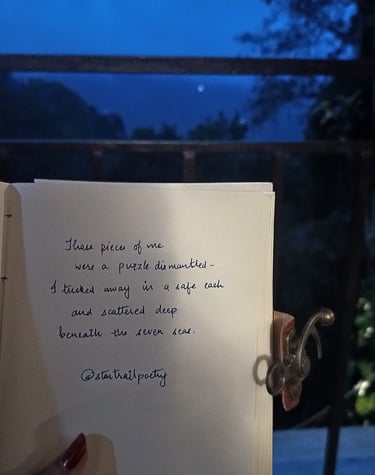 These pieces of me
were a puzzle dismantled -
I tucked away in a safe each
and scattered deep
beneath the seven seas.
@startrailpoetry